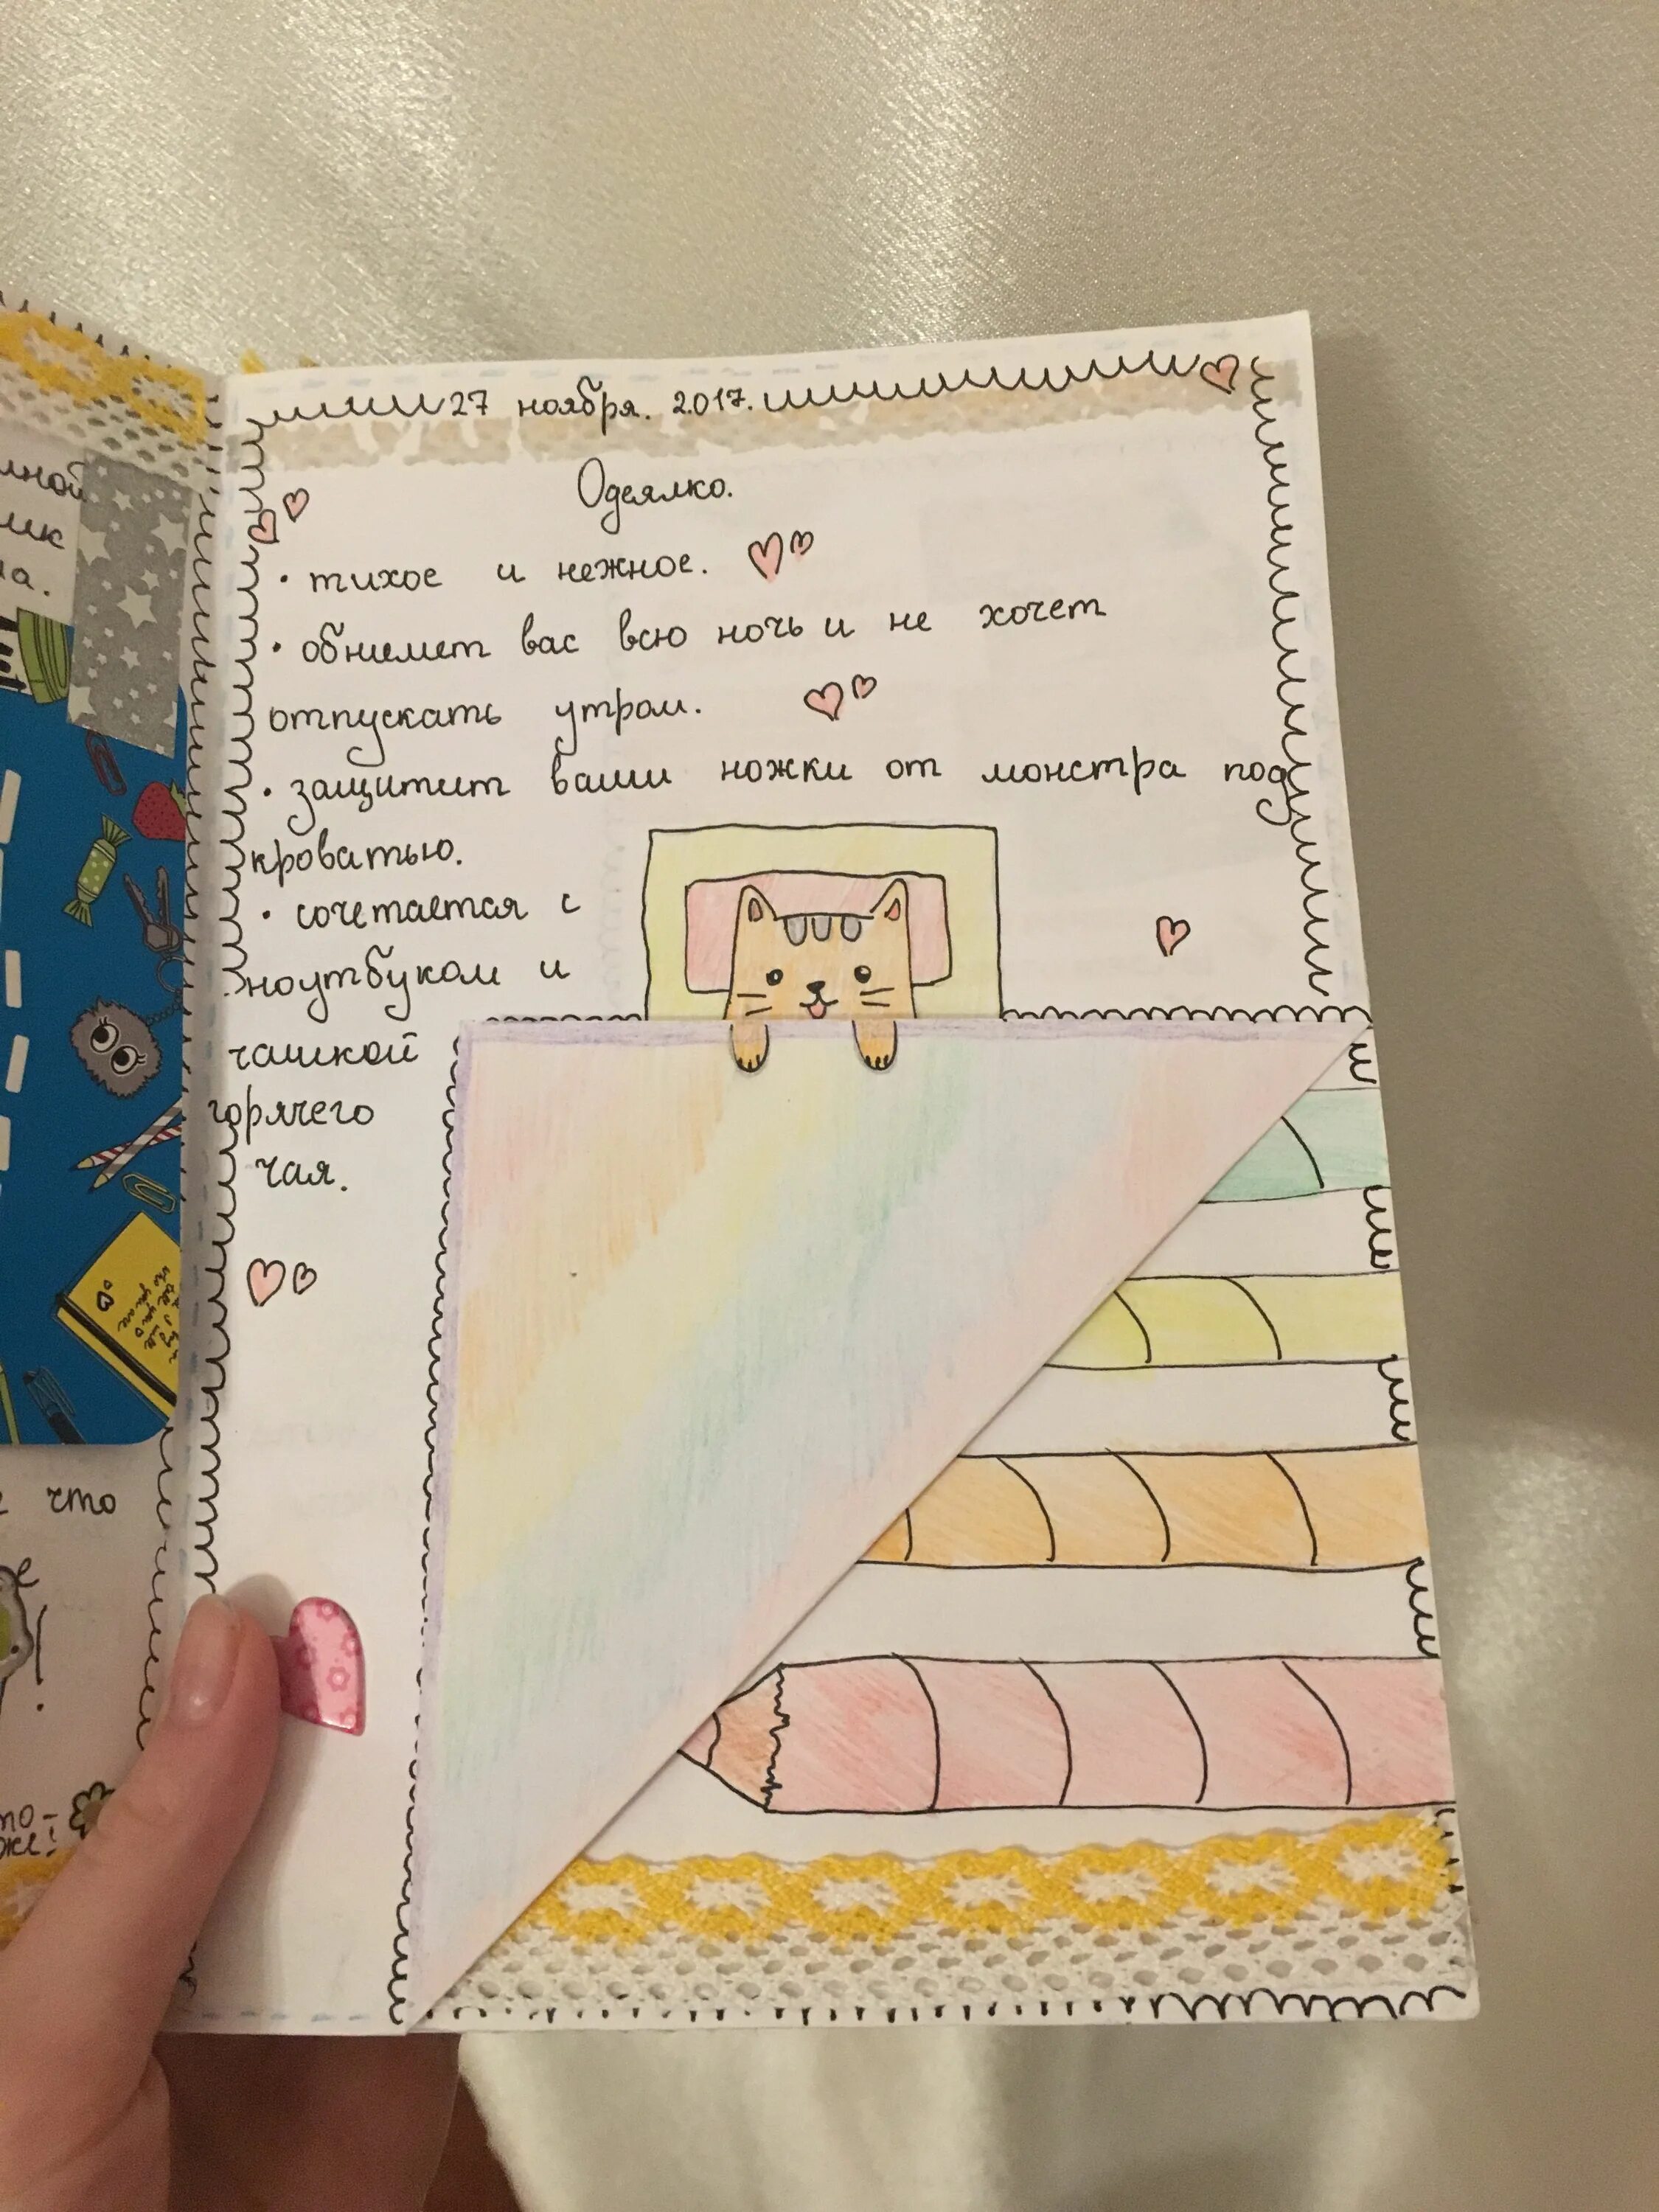 27 ноября. 2017.
Одеялко.
• тихое и нежное.
• обнимет вас всю ночь и не хочет
отпускать утром.
• защитит ваши ножки от монстра под
кроватью.
• сочетается с
ноутбуком и
чашкой
горячего
чая.
что